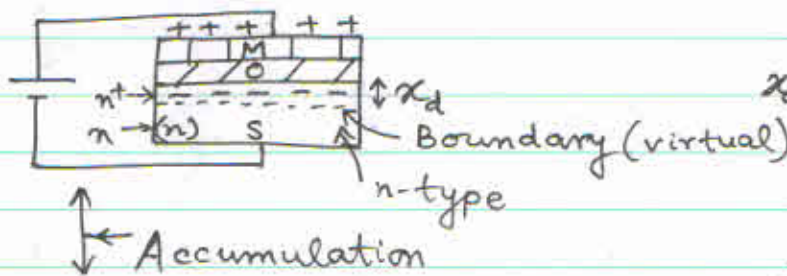 + + + + +
M
O
n⁺ → - - - - - ↕ x_d
n → (n) S Boundary (virtual)
n-type
Accumulation